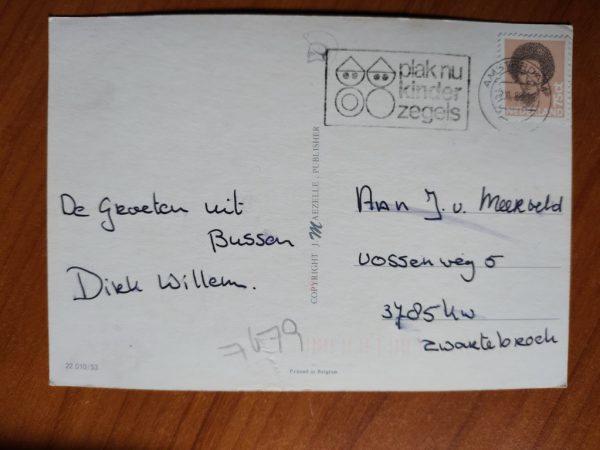 plak nu
kinder
zegels
NEDERLAND
De Groeten uit
Bussen
Dirk Willem.
Aan J. v. Meerveld
vossenweg 5
3785kw
zwartebroek
COPYRIGHT J MAEZELLE, PUBLISHER
7479
22.010/53
Printed in Belgium